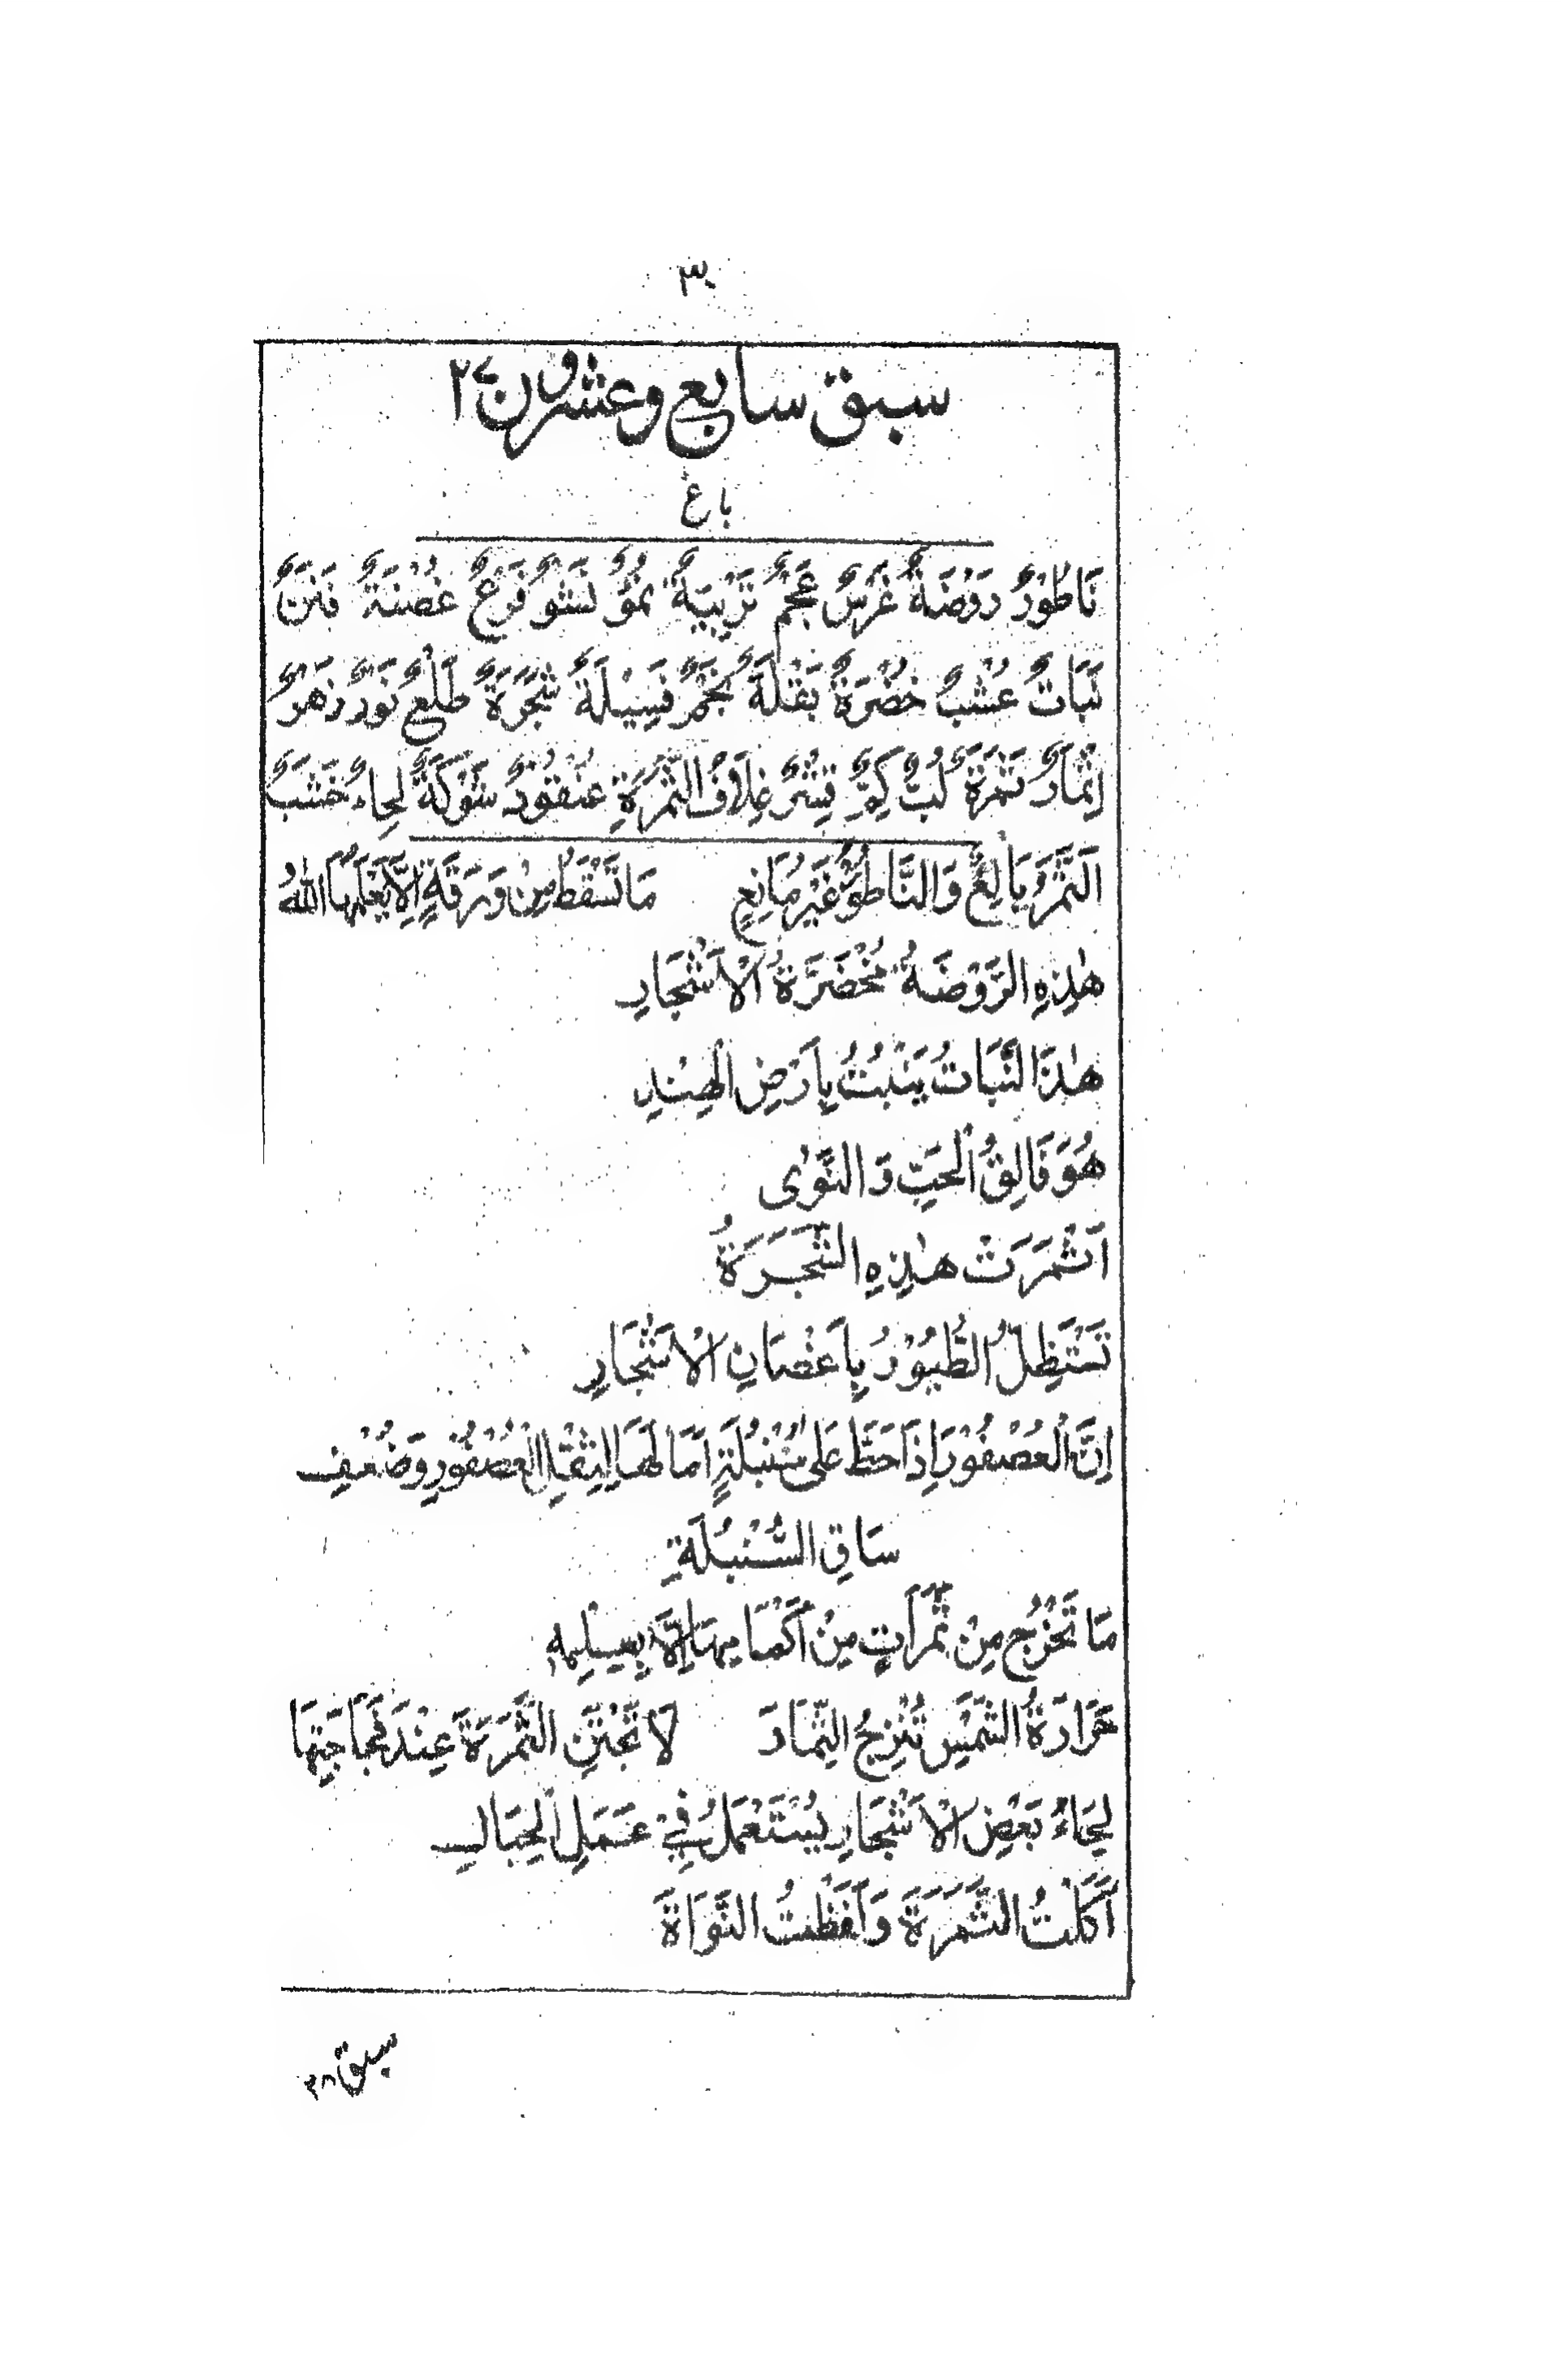 ٣٠
سبق سابع وعشرون ٢٧
باغ
نَاطُوْرٌ رَوْضَةٌ غَرْسٌ عَجْمٌ تَرْبِيَةٌ نُمُوٌّ نَشْوٌ فَرْعٌ غُصْنَةٌ فَنَنٌ
نَبَاتٌ عُشْبٌ خُضْرَةٌ بَقْلَةٌ نَجْمٌ فَسِيْلَةٌ شَجَرَةٌ طَلْعٌ نَوْرٌ زَهْرٌ
اِثْمَارٌ ثَمَرَةٌ لُبٌّ كِمٌّ قِشْرٌ غِلَافُ الثَّمَرَةِ عُنْقُوْدٌ شَوْكَةٌ لِحَاءٌ خَشَبٌ
اَلثَّمَرُ يَانِعٌ وَالنَّاطُوْرُ غَيْرُ مَانِعٍ مَا تَسْقُطُ مِنْ وَرَقَةٍ اِلَّا يَعْلَمُهَا اللّٰهُ
هٰذِهِ الرَّوْضَةُ مُخْضَرَّةُ الْاَشْجَارِ
هٰذَا النَّبَاتُ يَنْبُتُ بِاَرْضِ الْهِنْدِ
هُوَ فَالِقُ الْحَبِّ وَ النَّوٰى
اَثْمَرَتْ هٰذِهِ الشَّجَرَةُ
تَسْتَظِلُّ الطُّيُوْرُ بِاَغْصَانِ الْاَشْجَارِ
اِنَّ الْعُصْفُوْرَ اِذَا حَطَّ عَلٰى سُنْبُلَةٍ اَمَالَهَا لِثِقْلِ الْعُصْفُوْرِ وَضُعْفِ
سَاقِ السُّنْبُلَةِ
مَا تَخْرُجُ مِنْ ثَمَرَاتٍ مِنْ اَكْمَامِهَا اِلَّا بِعِلْمِهٖ
حَرَارَةُ الشَّمْسِ تُنْضِجُ الثِّمَارَ لَا تَجْتَنِ الثَّمَرَةَ عِنْدَ فَجَاجَتِهَا
لِحَاءُ بَعْضِ الْاَشْجَارِ يُسْتَعْمَلُ فِيْ عَمَلِ الْحِبَالِ
اَكَلْتُ الثَّمَرَةَ وَلَفَظْتُ النَّوَاةَ
سبق ٢٨